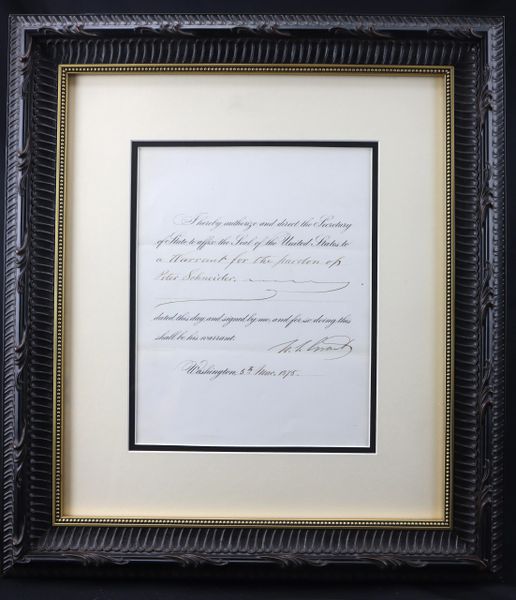 I hereby authorize and direct the Secretary
of State to affix the Seal of the United States to
a Warrant for the pardon of
Peter Schneider.
dated this day and signed by me, and for so doing this
shall be his warrant.
U. S. Grant
Washington, 5th June, 1875.